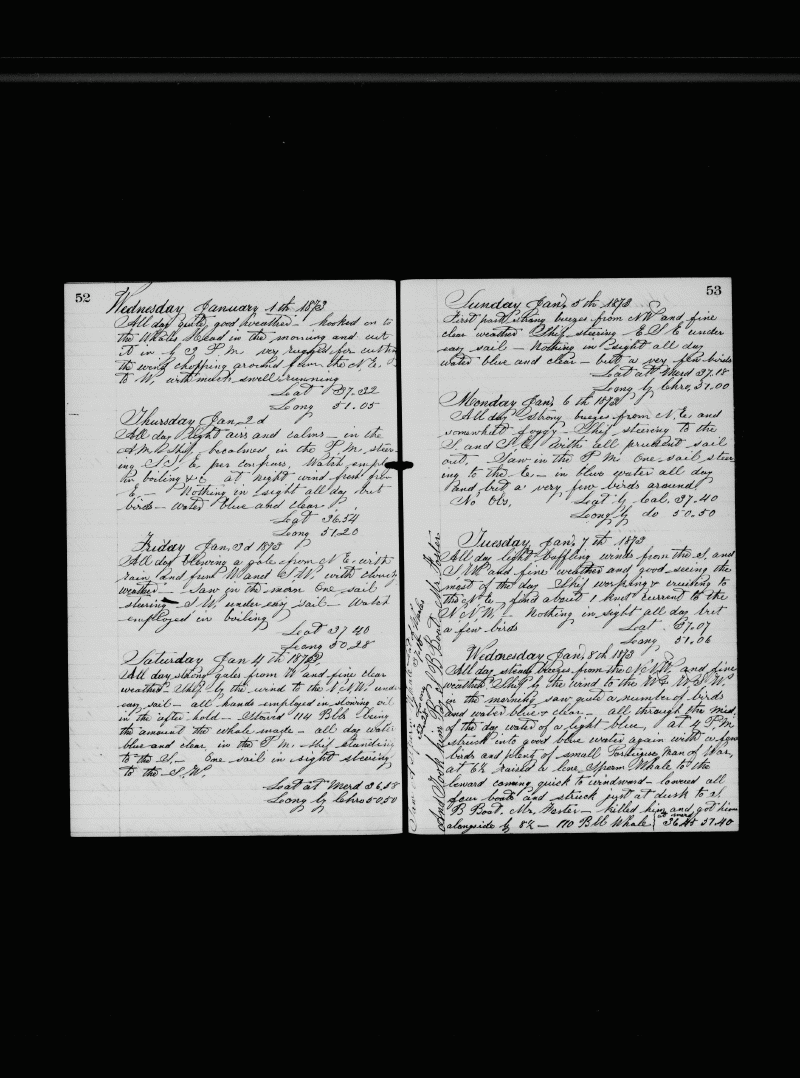 52
Wednesday January 1th 1873
All day quite good weather - hooked on to
the Whales Head in the morning and cut
It in by 3 P M very rugged for cutting
the wind chopping around from the N. E.
to W, with much swell running
Lat 37.32
Long 51.05
Thursday Jan 2d
All day light airs and calms - in the
A. M. Ship becalmed in the P. M. steer-
ing S. E. per compass, Watch emp
in boiling &c at night wind fresh fr
E. Nothing in sight all day but
birds - water blue and clear
Lat 36.54
Long 51.20
Friday Jan, 3d 1873
All day blowing a gale from N. E. with
rain and from W and S. W. with cloudy
weather - Saw in the morn One sail
steering S. W. under easy sail - Watch
employed in boiling
Lat 37 40
Long 50.28
Saturday Jan 4th 1873
All day strong gales from W and fine clear
weather - Ship by the wind to the N. N. W. under
easy sail - all hands employed in stowing oil
in the after hold - Stowed 114 Bbls being
the amount the whale made - all day water
blue and clear, in the P. M. ship standing
to the S. - One sail in sight steering
to the S. W.
Lat at Merd 36.58
Long by Chro 50.50
53
Sunday Jan, 5th 1873
First part strong breezes from N W and fine
clear weather Ship steering E. S. E under
easy sail - Nothing in sight all day
water blue and clear - but a very few birds
Lat at Merd 37.18
Long by Chro, 51.00
Monday Jan, 6th 1873
All day strong breezes from N. E. and
somewhat foggy - Ship steering to the
S. and S. E. with all prudent sail
out, - Saw in the P. M. One sail steer-
ing to the E. - in blue water all day
and but a very few birds around
No Obs, Lat by Cal. 37.40
Long by do 50.50
Tuesday Jan, 7th, 1873
All day light baffling winds from the S. and
S. W. and fine weather and good seeing the
most of the day Ship working & cruising to
the N. E. find about 1 knot current to the
N. N. W. - Nothing in sight all day but
a few birds Lat 37.07
Long 51.06
Wednesday Jan, 8th 1873
All day steady breezes from the N. N. W. and fine
weather Ship by the wind to the W &
in the morning saw quite a number of birds
and water blue & clear - all through the mid,
of the day water of a light blue, at 4 P M
struck into good blue water again with a few
birds and plenty of small Portugee Man of War,
at raised a lone Sperm Whale to the
leward coming quick to windward - lowered all
four boats and struck just at dusk to
B Boat. Mr, Foster - killed him and got him
alongside by - 110 Bbl Whale 36.48 51.40
And Took him By L B Boat Mr. Foster